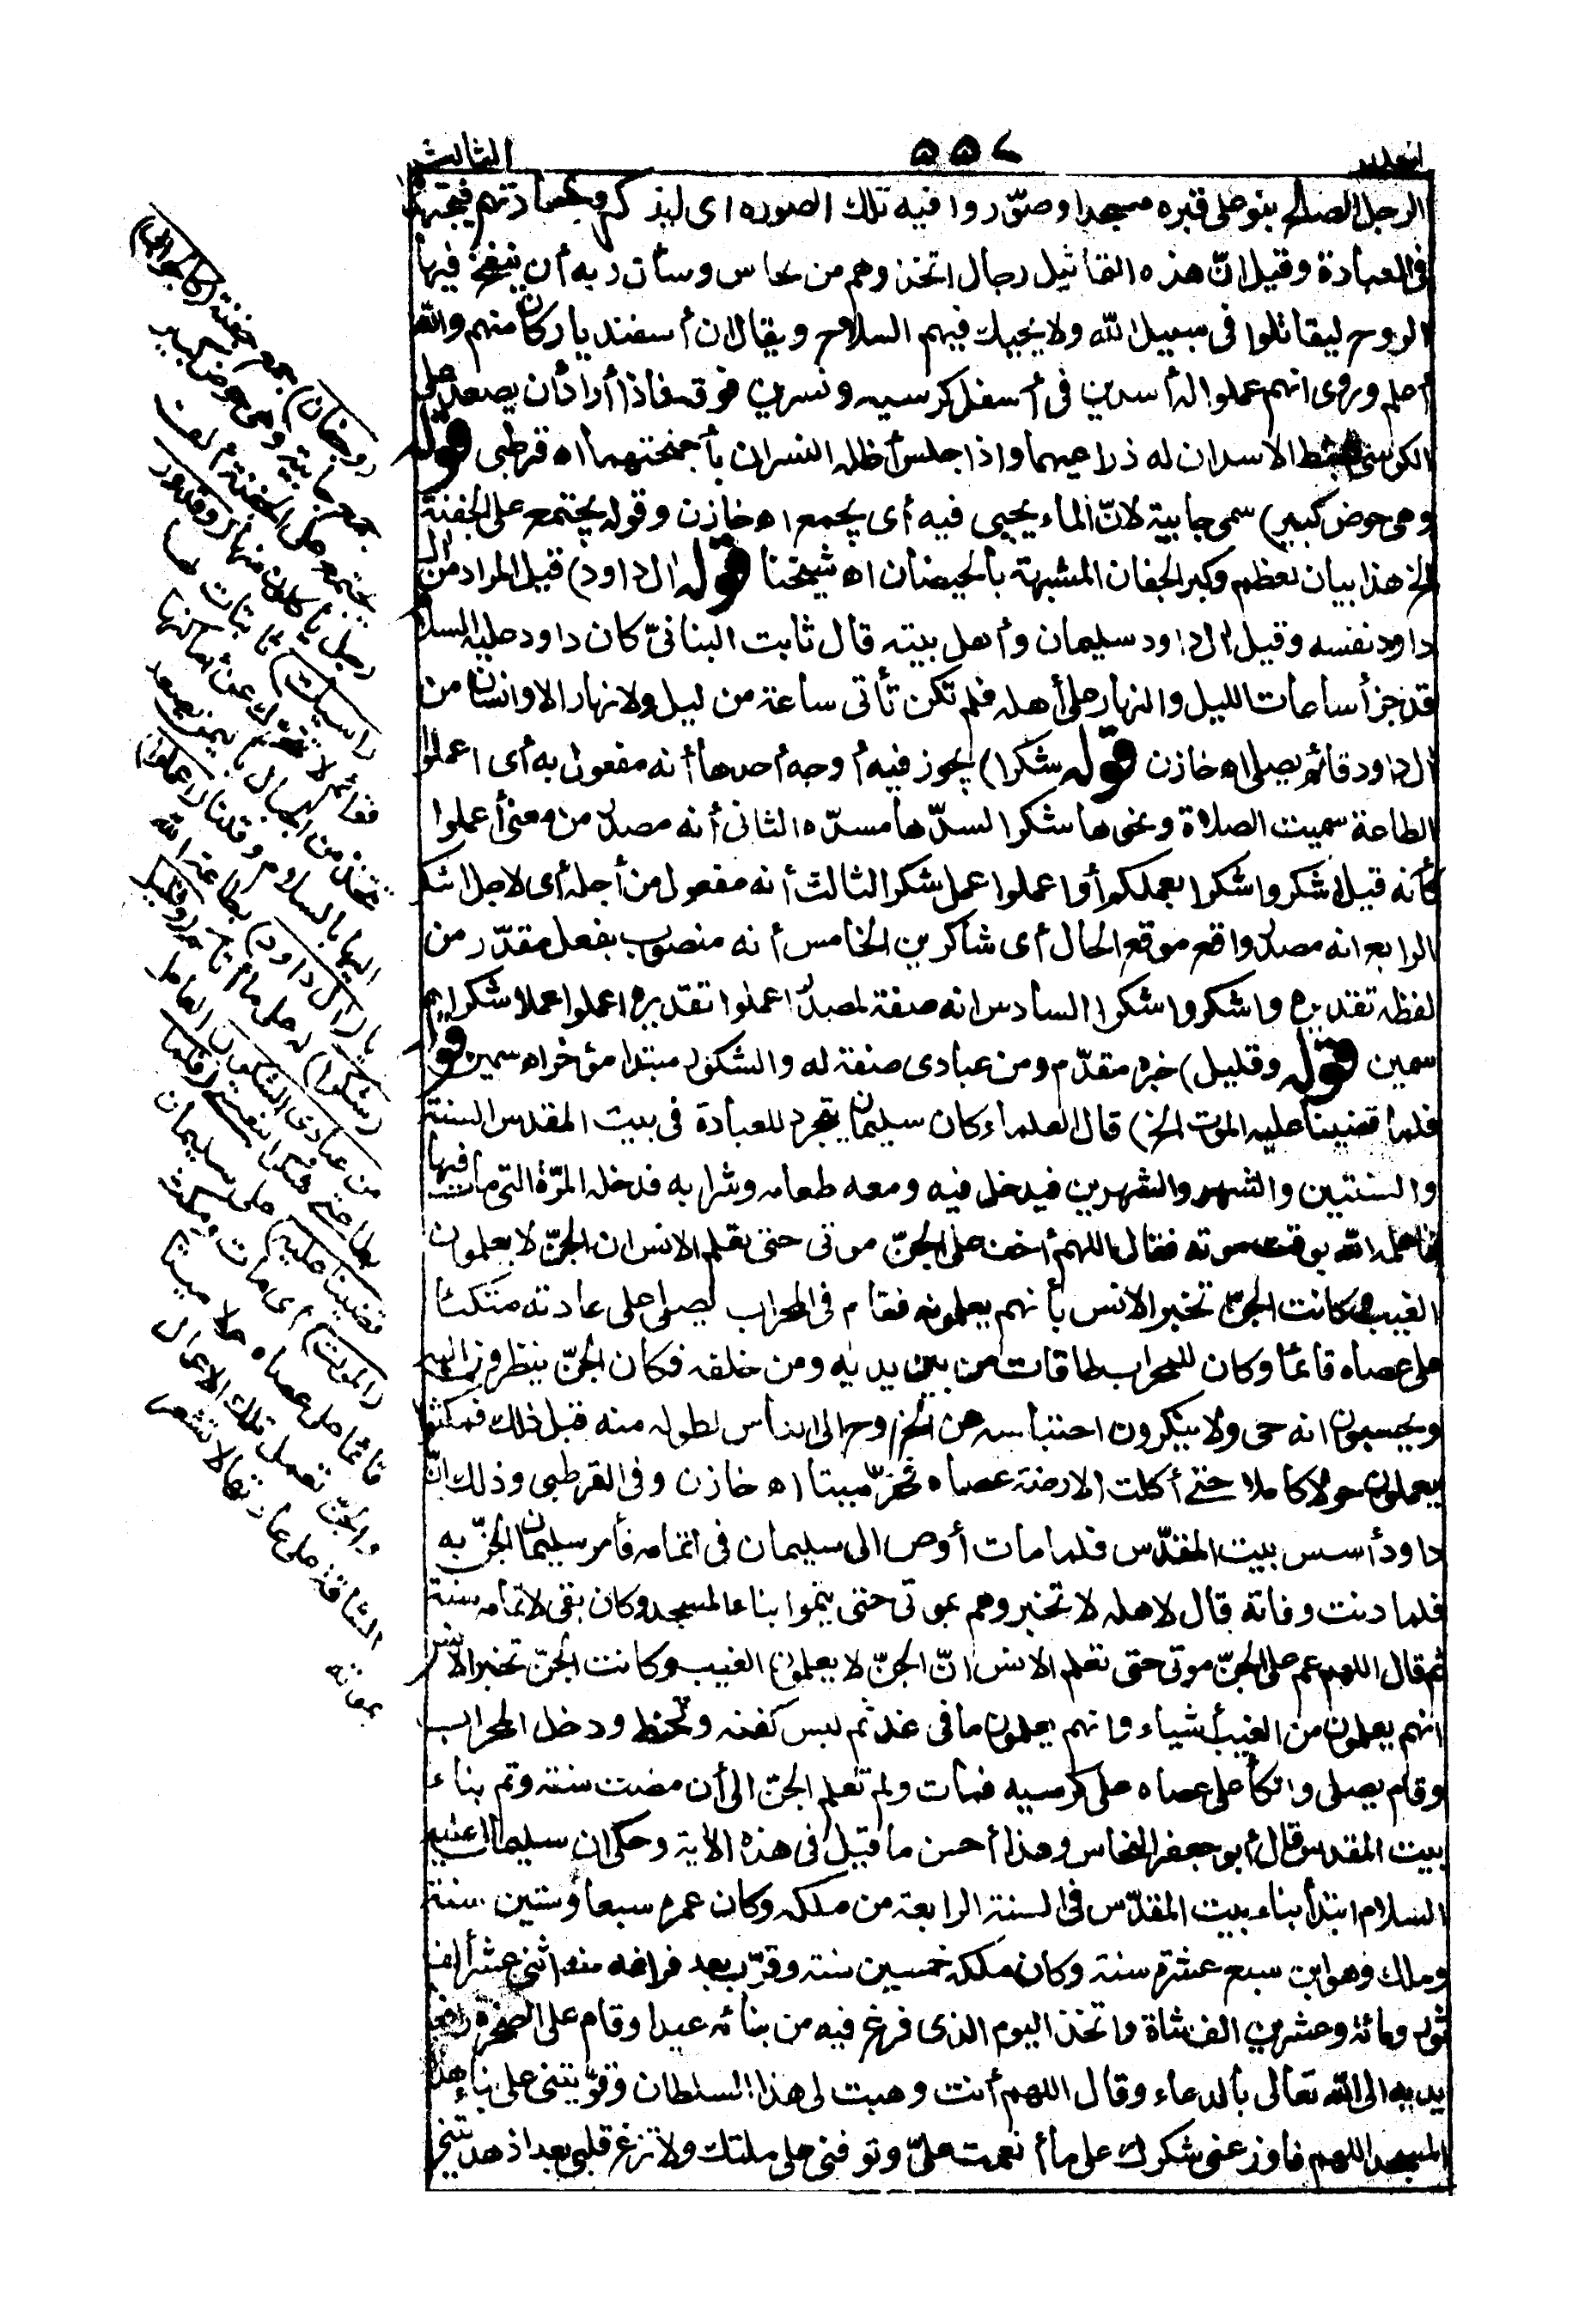 الثالث
٥٥٧
الرجل الصالح بنوا على قبره مسجدا وصوّروا فيه تلك الصورة اى ليذكروا عبادتهم فيجتهدوا
فى العبادة وقيل انّ هذه التماثيل رجال اتخذوهم من نحاس وسأل ربه أن ينفخ فيها
الروح ليقاتلوا فى سبيل اللّه ولا يحيك فيهم السلاح ويقال ان أسفنديار كان منهم واللّه
أعلم وروى انهم عملوا له أسدين فى أسفل كرسيه ونسرين فوقه فاذا أراد أن يصعد على
الكرسى بسط الاسدان له ذراعيهما واذا جلس أظله النسران بأجنحتهما اه قرطبى قوله
وهى حوض كبير) سمى جابية لانّ الماء يجبى فيه أى يجمع اه خازن وقوله يجتمع على الجفنة
الخ هذا بيان لعظم وكبر الجفان المشبهة بالحيضان اه شيخنا قوله ال داود) قيل المراد من ال
داود نفسه وقيل ال داود سليمان وأهل بيته قال ثابت البنانىّ كان داود عليه السلام
قد جزأ ساعات الليل والنهار على أهله فلم تكن تأتى ساعة من ليل ولا نهار الا وانسان من
ال داود قائم يصلى اه خازن قوله شكرا) يجوز فيه أوجه أحدها أنه مفعول به أى اعملوا
الطاعة سميت الصلاة ونحوها شكرا لسدّها مسدّه الثانى أنه مصدر من معنى أعملوا
كأنه قيل اشكروا شكرا بعملكم أو اعملوا عمل شكر الثالث أنه مفعول من أجله أى لاجل الشكر
الرابع انه مصدر واقع موقع الحال أى شاكرين الخامس أنه منصوب بفعل مقدّر من
لفظه تقديره واشكروا شكرا السادس انه صفة لمصدر اعملوا تقديره اعملوا عملا شكرا اه
سمين قوله وقليل) خبر مقدّم ومن عبادى صفة له والشكور مبتدا مؤخر اه سمين قوله
فلما قضينا عليه الموت الخ) قال العلماء كان سليمان يتجرد للعبادة فى بيت المقدس السنة
والسنتين والشهر والشهرين فيدخل فيه ومعه طعامه وشرابه فدخله المرّة التى مات فيها
فاعلمه اللّه بوقت موته فقال اللهم أخف على الجنّ موتى حتى يعلم الانس ان الجنّ لا يعلمون
الغيب وكانت الجنّ تخبر الانس بأنهم يعلمونه فقام فى المحراب ليصلى على عادته متكئا
على عصاه قائما وكان للمحراب طاقات من بين يديه ومن خلفه فكان الجنّ ينظرون اليه
ويحسبون انه حى ولا ينكرون احتباسه عن الخروج الى الناس لطوله منه قبل ذلك فمكثوا
يعملون حولا كاملا حتى أكلت الارضة عصاه فخرّ ميتا اه خازن وفى القرطبى وذلك انّ
داود أسس بيت المقدّس فلما مات أوصى الى سليمان فى اتمامه فأمر سليمان الجنّ به
فلما دنت وفاته قال لاهله لا تخبروهم بموتى حتى يتموا بناء المسجد وكان بقى لاتمامه سنة
ثم قال اللهم عم على الجنّ موتى حتى تعلم الانس انّ الجنّ لا يعلمون الغيب وكانت الجنّ تخبر الانس
انهم يعلمون من الغيب أشياء وانهم يعلمون ما فى غد ثم لبس كفنه وتحنط ودخل المحراب
وقام يصلى واتكأ على عصاه على كرسيه فمات ولم تعلم الجنّ الى أن مضت سنة وتم بناء
بيت المقدس قال أبو جعفر النحاس وهذا أحسن ما قيل فى هذه الآية وحكى ان سليمان عليه
السلام ابتدأ بناء بيت المقدّس فى السنة الرابعة من ملكه وكان عمره سبعا وستين سنة
وملك وهو ابن سبع عشرة سنة وكان ملكه خمسين سنة وقرّب بعد فراغه منه اثنى عشر ألف
ثور ومائة وعشرين الف شاة واتخذ اليوم الذى فرغ فيه من بنائه عيدا وقام على الصخرة رافعا
يديه الى اللّه تعالى بالدعاء وقال اللهم أنت وهبت لى هذا السلطان وقوّيتنى على بناء هذا
المسجد اللهم فاوزعنى شكرك على ما أنعمت علىّ وتوفنى على ملتك ولا تزغ قلبى بعد اذ هديتنى
(وجفان) جمع جفنة (كالجوابى)
جمع جابية وهى حوض كبير
يجتمع على الجفنة ألف
رجل يأكلون منها (وقدور
راسيات) ثابتات لها
قوائم لا تتحرك عن أماكنها
تتخذ من الجبال باليمن يصعد
اليها بالسلالم وقلنا (اعملوا)
يا (ال داود) بطاعة اللّه
(شكرا) له على ما آتاكم (وقليل
من عبادى الشكور) العامل
بطاعتى شكرا لنعمتى (فلما
قضينا عليه) على سليمان
(الموت) أى مات ومكث
قائما على عصاه حولا ميتا
والجنّ تعمل تلك الاعمال
الشاقة على عادتها لا تشعر
بموته